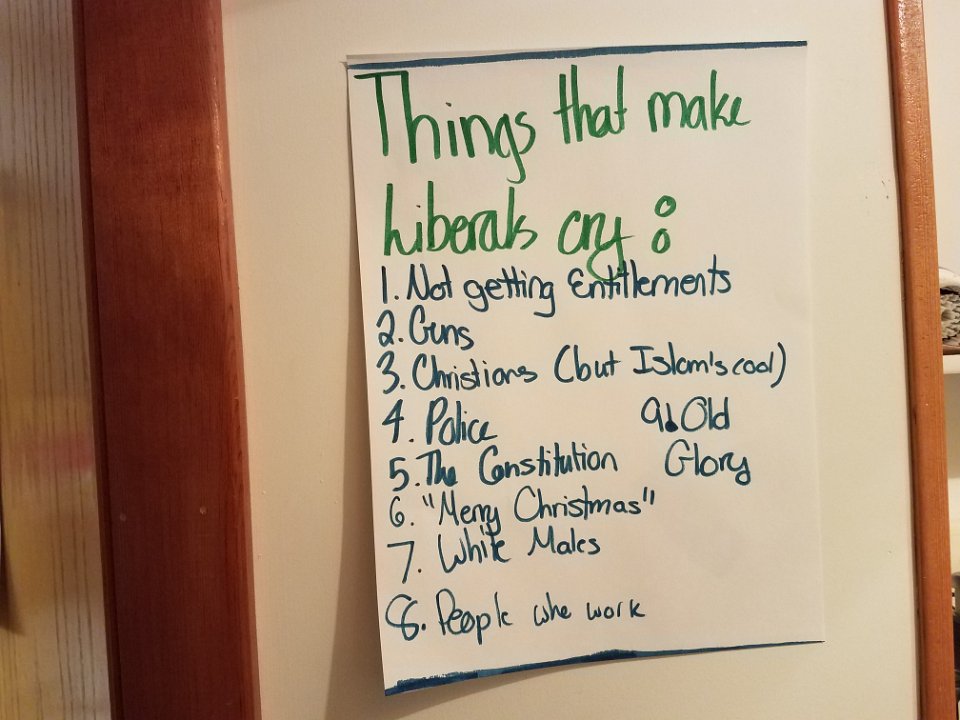 Things that make
Liberals cry:
1. Not getting Entitlements
2. Guns
3. Christians (but Islam's cool)
4. Police
9. Old
5. The Constitution
Glory
6. "Merry Christmas"
7. White Males
8. People who work